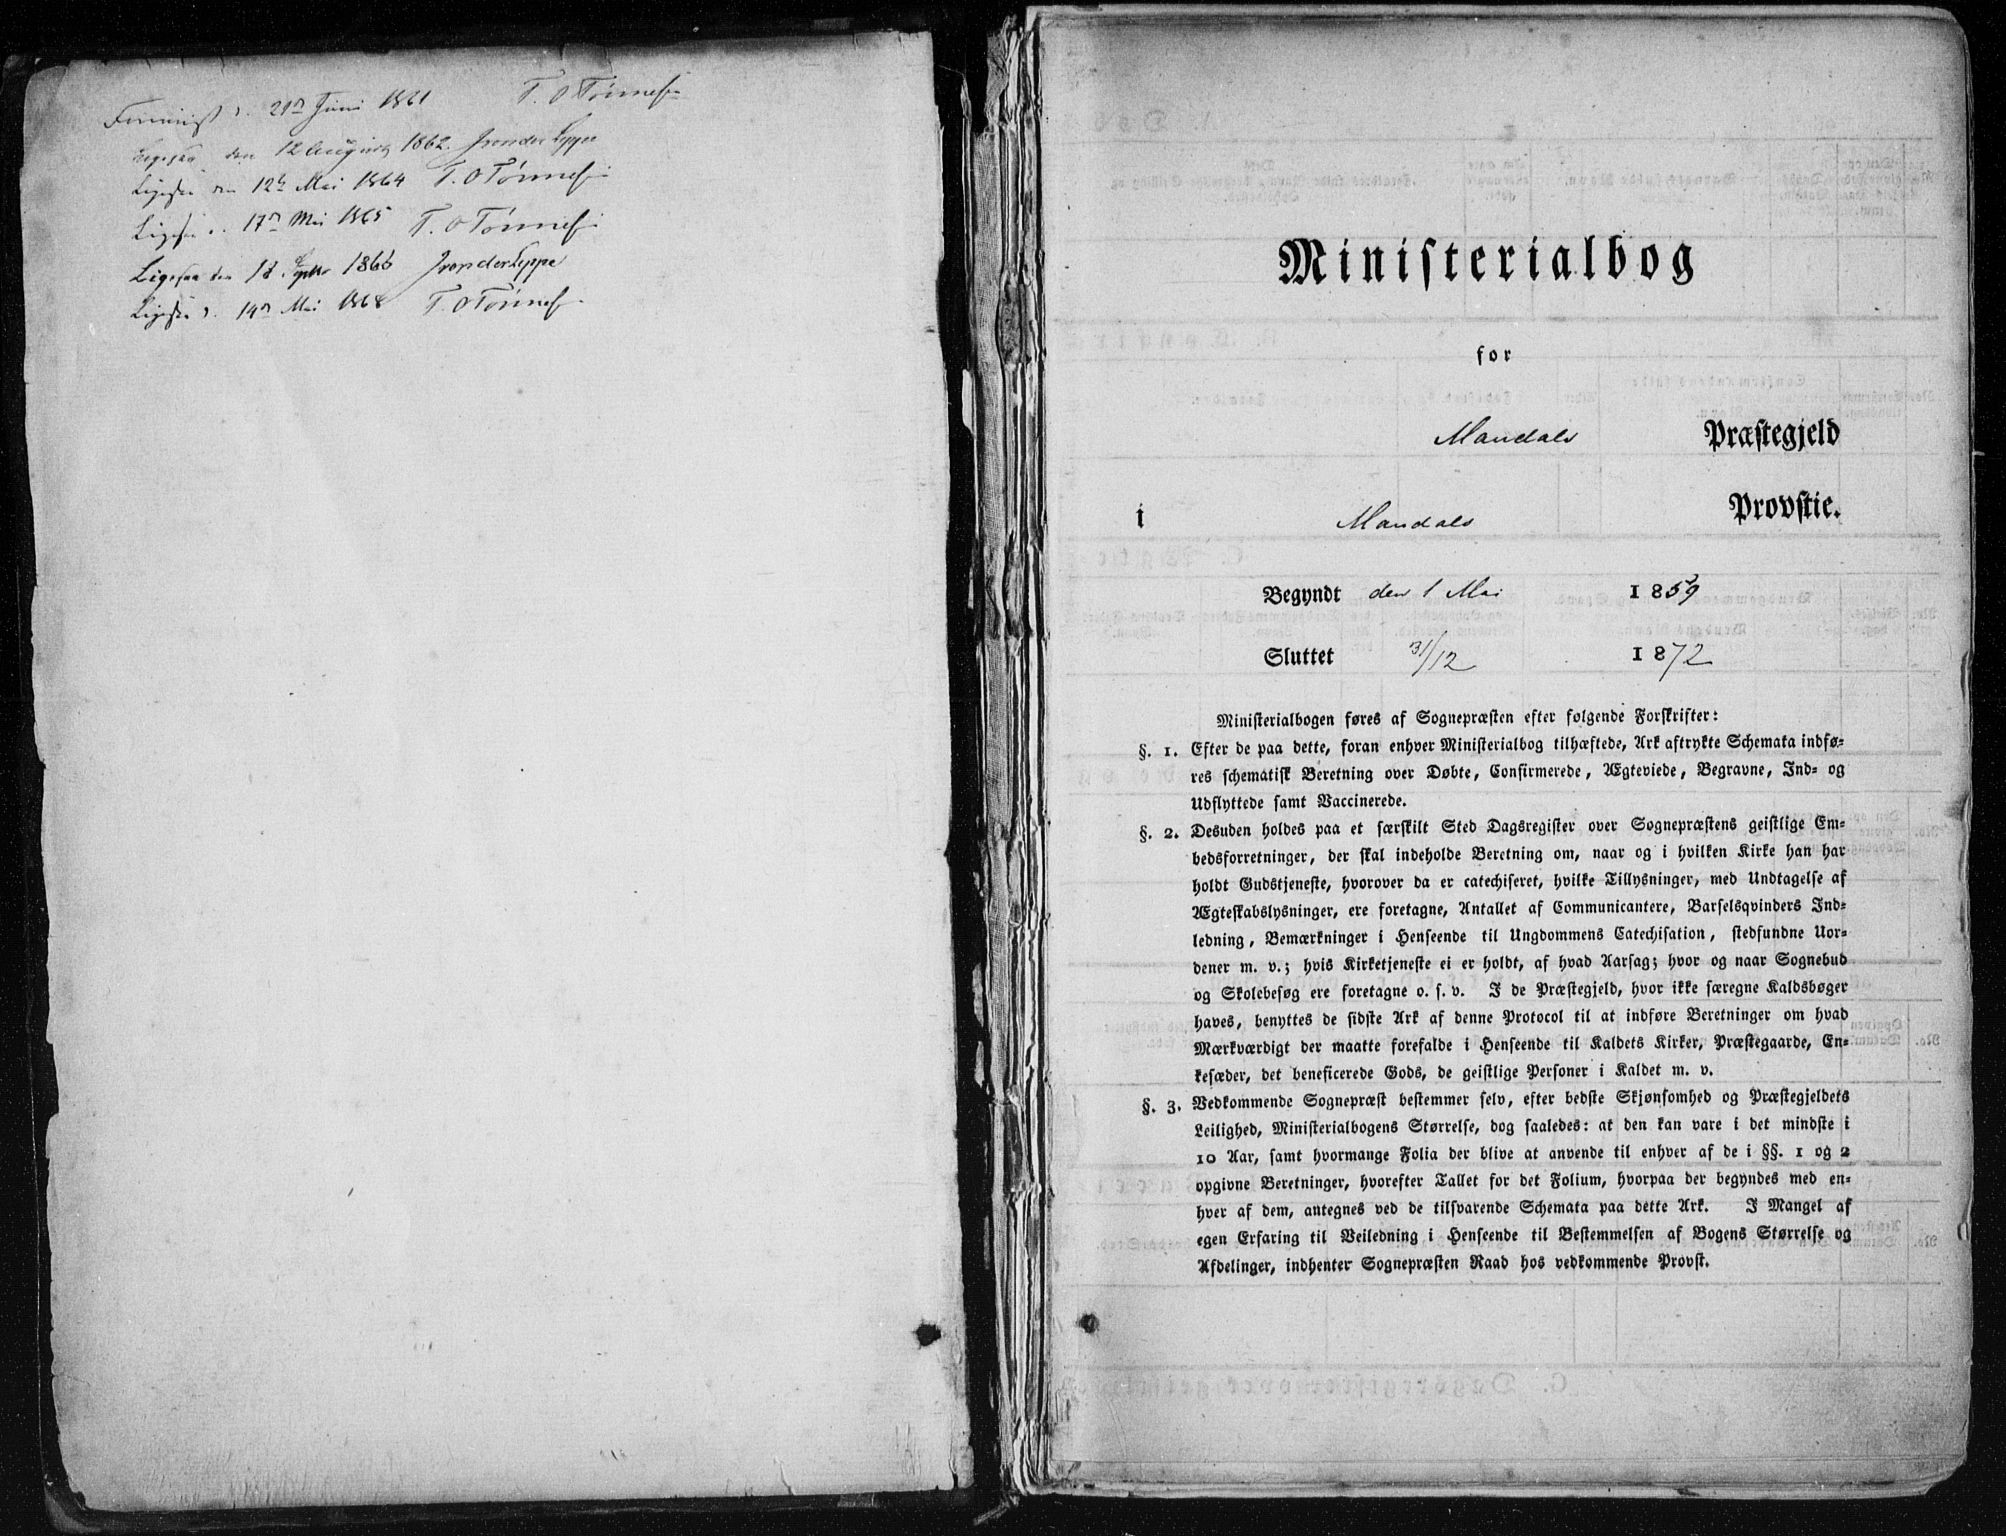 21de Juni 1861 T. O Tønnes
den 12 August 1862.
Ligesaa den 12te Mai 1864 T. O Tønnes
Ligesaa d. 17de Mai 1865 T. O Tønnes
Ligesaa den 18. 1866
Ligesaa d. 14de Mai 1868 T. O Tønnes
Ministerialbog
for
Mandals Præstegjeld
i Mandals Provstie.
Begyndt den 1 Mai 1859
Sluttet 31/12 1872
Ministerialbogen føres af Sognepræsten efter følgende Forskrifter:
§. 1. Efter de paa dette, foran enhver Ministerialbog tilhæftede, Ark aftrykte Schemata indfø-
res schematisk Beretning over Døbte, Confirmerede, Ægteviede, Begravne, Ind- og
Udflyttede samt Vaccinerede.
§. 2. Desuden holdes paa et særskilt Sted Dagsregister over Sognepræstens geistlige Em-
bedsforretninger, der skal indeholde Beretning om, naar og i hvilken Kirke han har
holdt Gudstjeneste, hvorover da er catechiseret, hvilke Tillysninger, med Undtagelse af
Ægteskabslysninger, ere foretagne, Antallet af Communicantere, Barselsqvinders Ind-
ledning, Bemærkninger i Henseende til Ungdommens Catechisation, stedfundne Uor-
dener m. v.; hvis Kirketjeneste ei er holdt, af hvad Aarsag; hvor og naar Sognebud
og Skolebesøg ere foretagne o. s. v. I de Præstegjeld, hvor ikke særegne Kaldsbøger
haves, benyttes de sidste Ark af denne Protocol til at indføre Beretninger om hvad
Mærkværdigt der maatte forefalde i Henseende til Kaldets Kirker, Præstegaarde, En-
kesæder, det beneficerede Gods, de geistlige Personer i Kaldet m. v.
§. 3. Vedkommende Sognepræst bestemmer selv, efter bedste Skjønsomhed og Præstegjeldets
Leilighed, Ministerialbogens Størrelse, dog saaledes: at den kan vare i det mindste i
10 Aar, samt hvormange Folia der blive at anvende til enhver af de i §§. 1 og 2
opgivne Beretninger, hvorefter Tallet for det Folium, hvorpaa der begyndes med en-
hver af dem, antegnes ved de tilsvarende Schemata paa dette Ark. I Mangel af
egen Erfaring til Veiledning i Henseende til Bestemmelsen af Bogens Størrelse og
Afdelinger, indhenter Sognepræsten Raad hos vedkommende Provst.